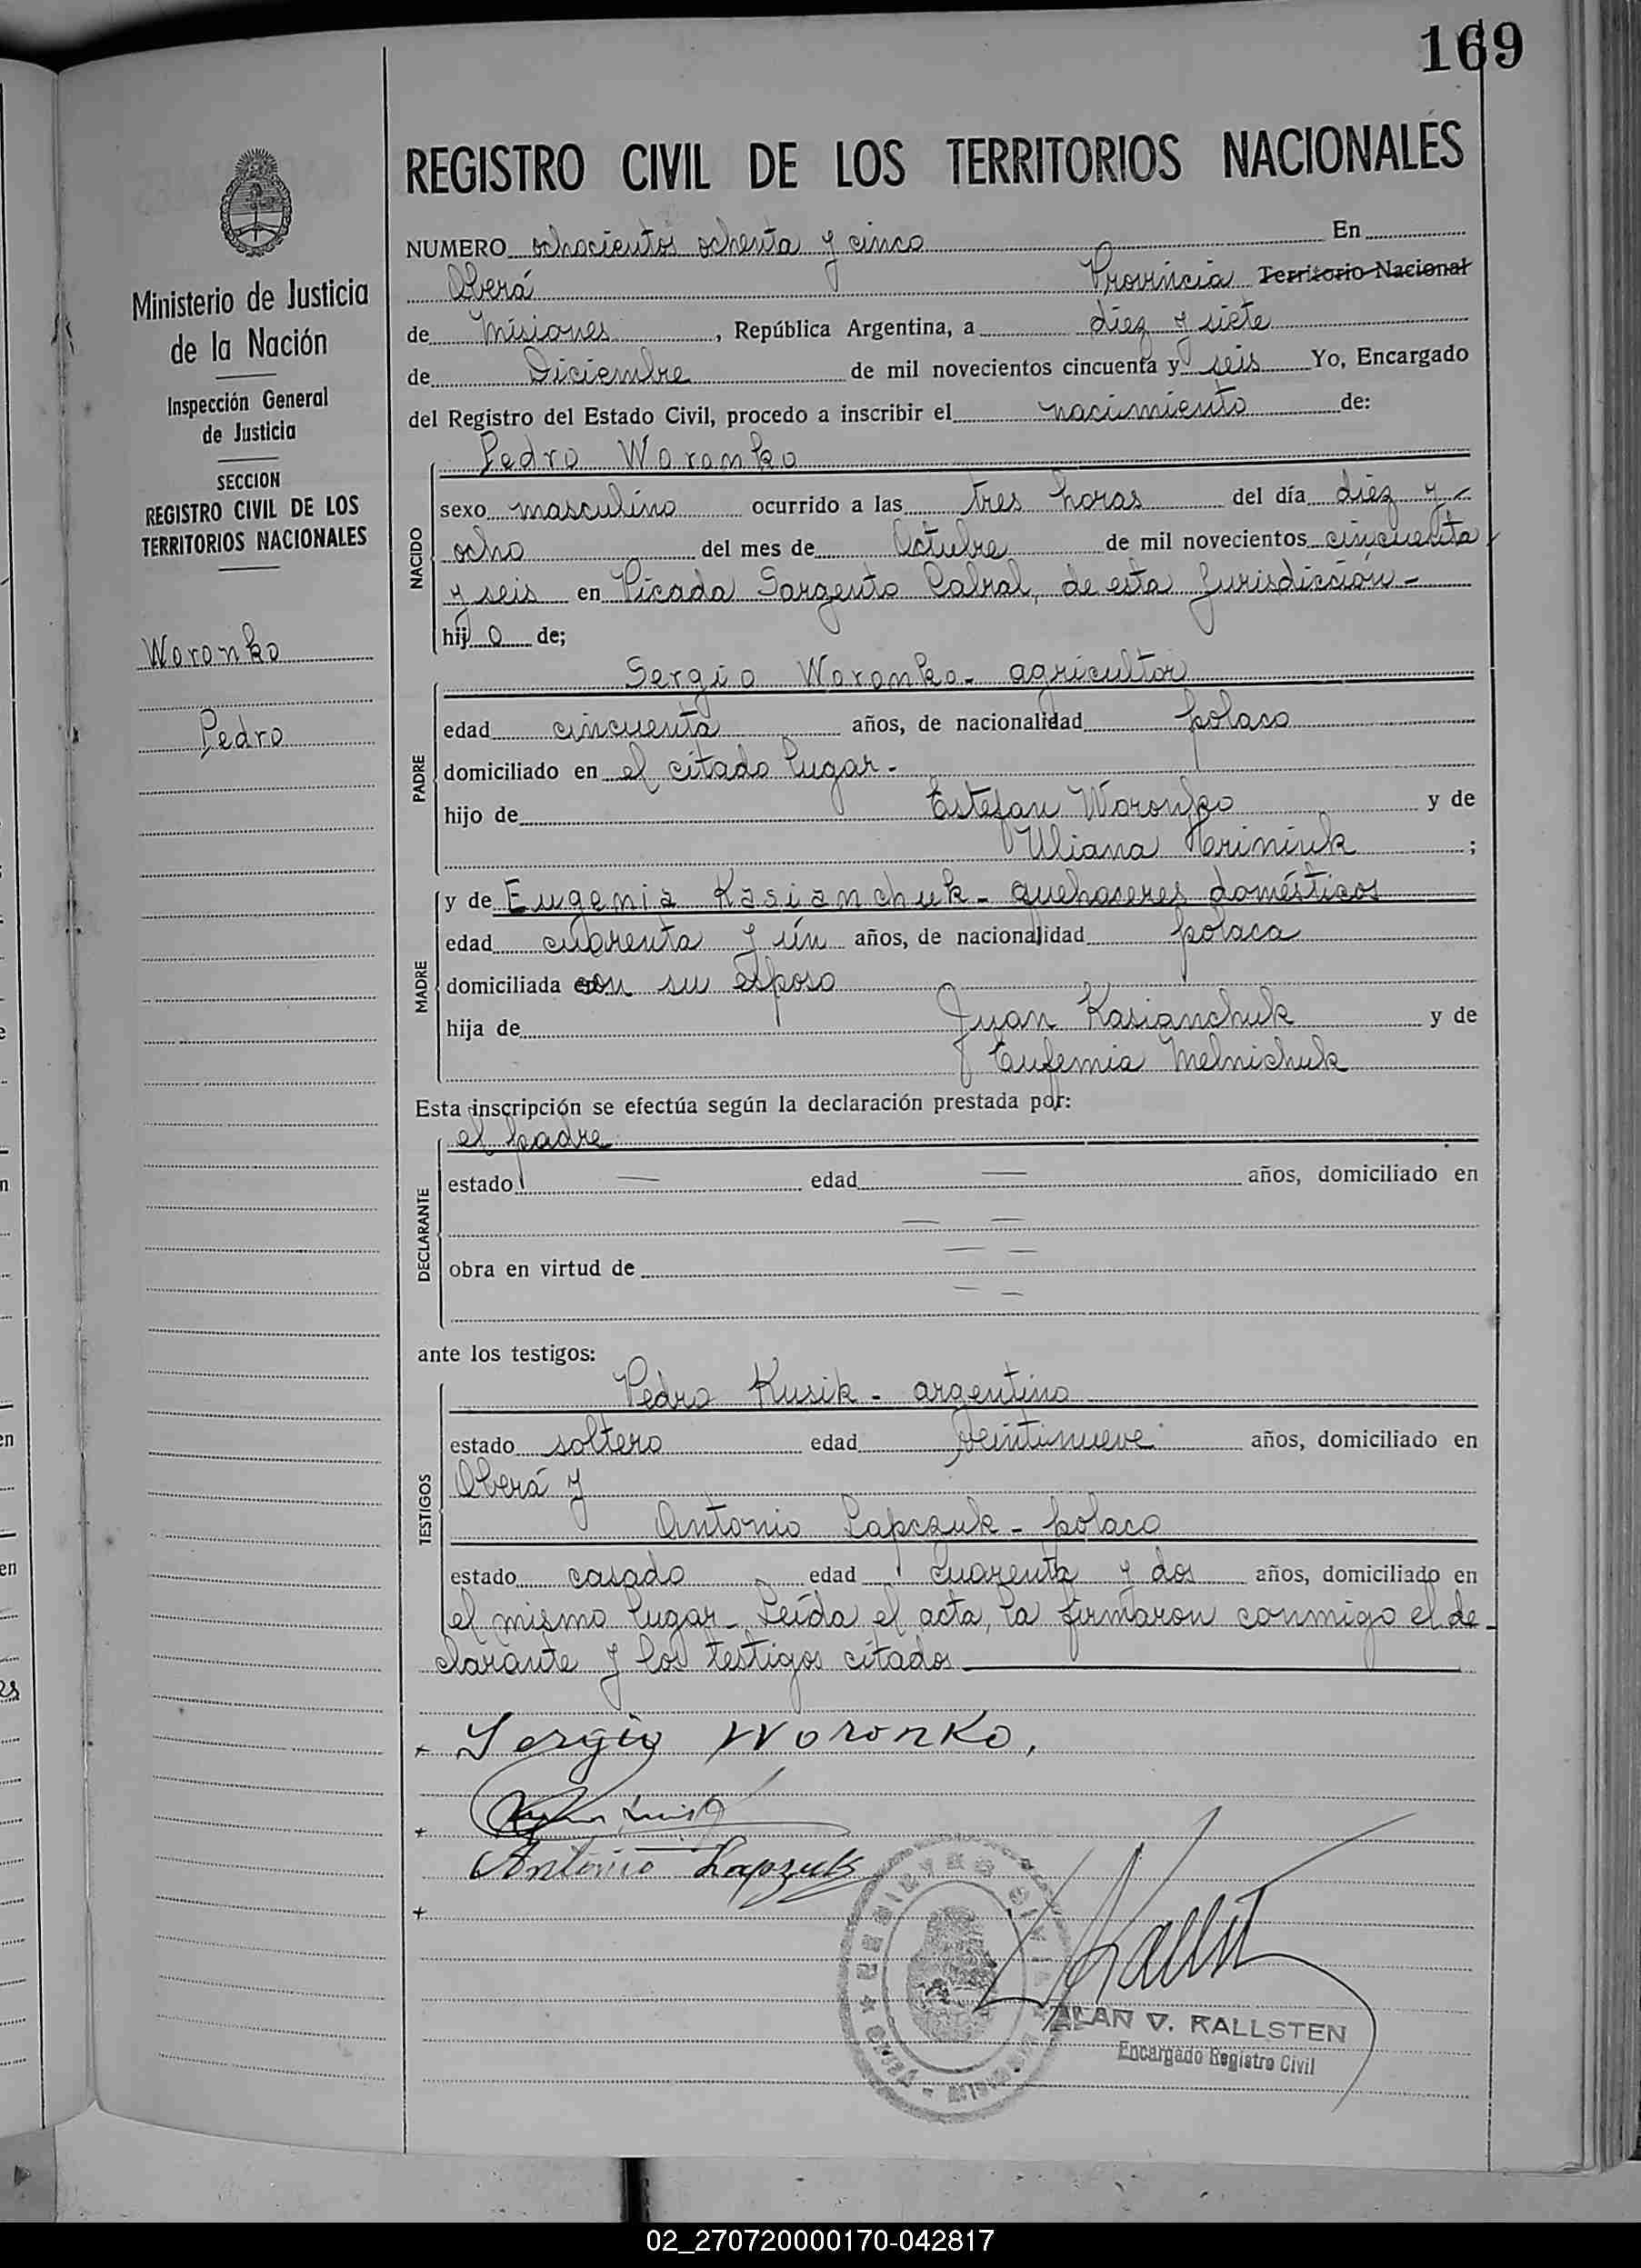 169
REGISTRO CIVIL DE LOS TERRITORIOS NACIONALES
Ministerio de Justicia
de la Nación
Inspección General
de Justicia
SECCION
REGISTRO CIVIL DE LOS
TERRITORIOS NACIONALES
Woronko
Pedro
NUMERO ochocientos ochenta y cinco En
Oberá Provincia Territorio Nacional
de Misiones, República Argentina, a diez y siete
de Diciembre de mil novecientos cincuenta y seis Yo, Encargado
del Registro del Estado Civil, procedo a inscribir el nacimiento de:
NACIDO
Pedro Woronko
sexo masculino ocurrido a las tres horas del día diez y
ocho del mes de Octubre de mil novecientos cincuenta
y seis en Picada Sargento Cabral, de esta Jurisdicción -
hijo de;
PADRE
Sergio Woronko - agricultor
edad cincuenta años, de nacionalidad polaco
domiciliado en el citado lugar -
hijo de Estefan Woronko y de
Uliana Hriniuk ;
MADRE
y de Eugenia Kasianchuk - quehaceres domésticos
edad cuarenta y ún años, de nacionalidad polaca
domiciliada con su esposo
hija de Juan Kasianchuk y de
Eufemia Melnichuk
Esta inscripción se efectúa según la declaración prestada por:
DECLARANTE
el padre
estado — edad — años, domiciliado en
— —
obra en virtud de — —
— —
ante los testigos:
TESTIGOS
Pedro Kusik - argentino
estado soltero edad veintinueve años, domiciliado en
Oberá y
Antonio Lapczuk - polaco
estado casado edad cuarenta y dos años, domiciliado en
el mismo lugar - Leída el acta, la firmaron conmigo el de-
clarante y los testigos citados
Sergio Woronko,
Antonio Lapzuk
ALAN V. RALLSTEN
Encargado Registro Civil
02_270720000170-042817